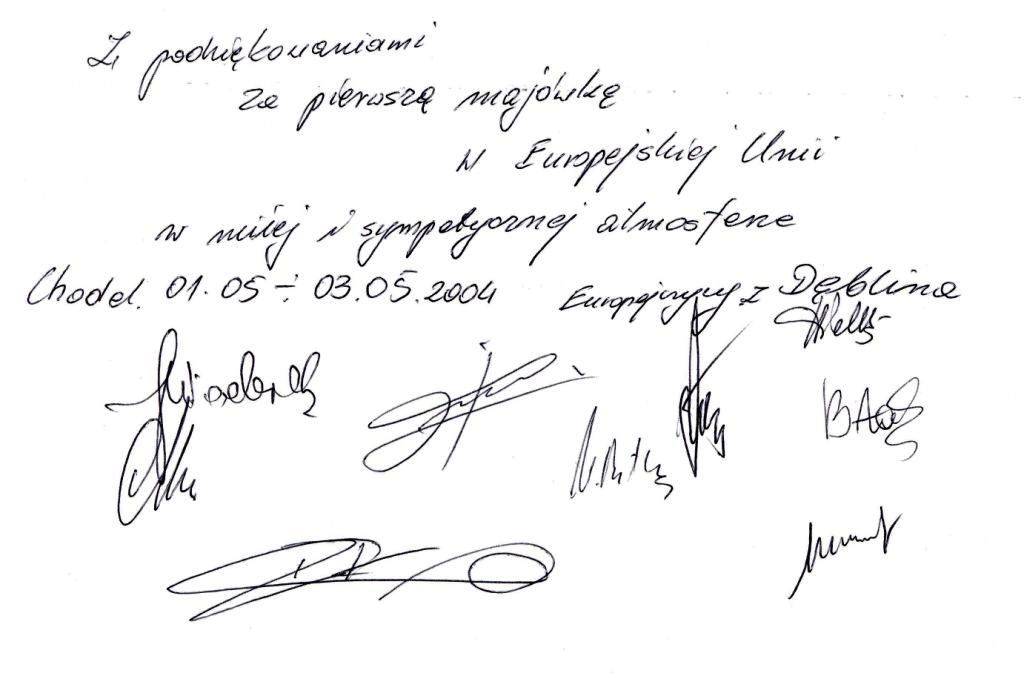 Z podziękowaniami
za pierwszą majówkę
w Europejskiej Unii
w miłej i sympatycznej atmosferze
Chodel. 01.05 ÷ 03.05.2004 Europejczycy z Dęblina